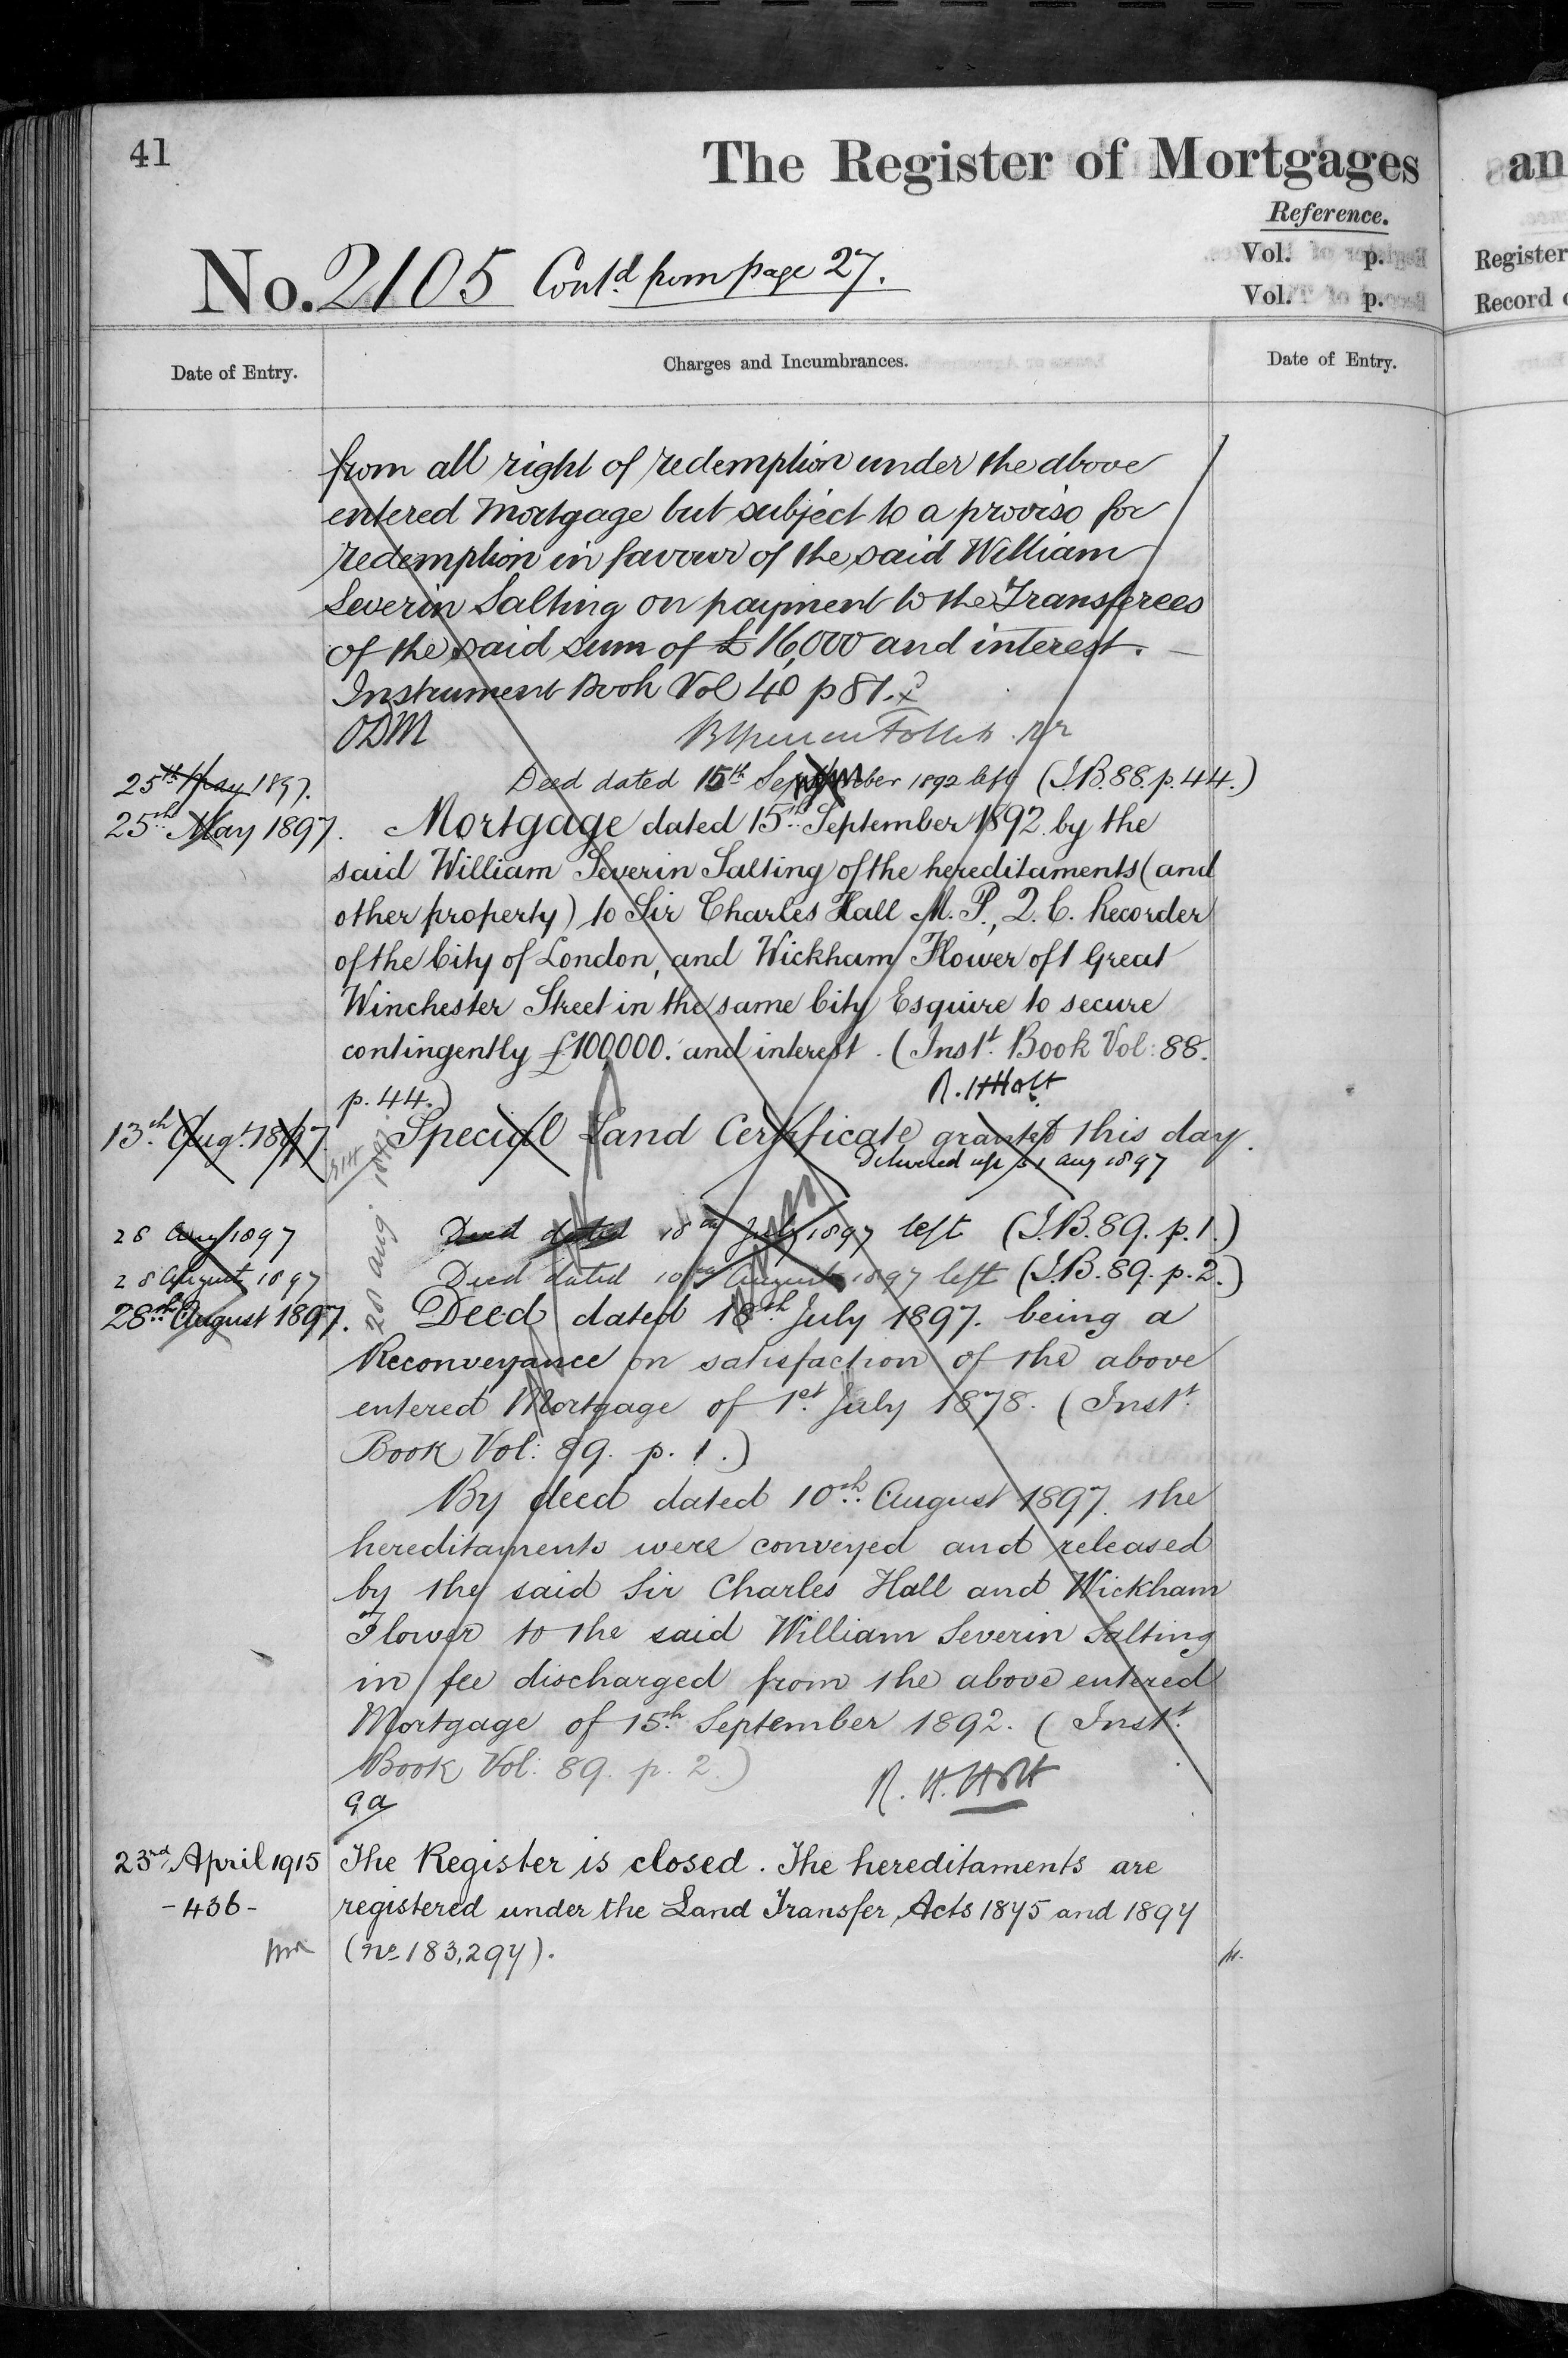 41
The Register of Mortgages
an
Reference.
Vol. p.
Register
Vol. p.
Record
No. 2105 Cont.d from page 27.
Date of Entry.
Charges and Incumbrances.
Date of Entry.
from all right of redemption under the above
entered Mortgage but subject to a proviso for
redemption in favour of the said William
Severin Salting on payment to the Transferees
of the said sum of £16,000 and interest. —
Instrument Book Vol 40 p 81.
ODM
25th May 1897. Deed dated 15th September 1892 left (I.B. 88. p. 44.)
25th May 1897. Mortgage dated 15th September 1892 by the
said William Severin Salting of the hereditaments (and
other property) to Sir Charles Hall M. P., Q. C. Recorder
of the City of London, and Wickham Flower of 1 Great
Winchester Street in the same City Esquire to secure
contingently £100,000. and interest. (Inst. Book Vol: 88.
p. 44.)
R. H Holt
13th Augt. 1897. Special Land Certificate granted this day.
Delivered up 31 Aug 1897
28 Aug 1897 Deed dated 18th July 1897 left (I.B. 89. p. 1.)
28 August 1897 Deed dated 10th August 1897 left (I.B. 89. p. 2.)
28th August 1897. Deed dated 18th July 1897. being a
Reconveyance on satisfaction of the above
entered Mortgage of 1st July 1878. (Inst.
Book Vol: 89. p. 1.)
By deed dated 10th August 1897 the
hereditaments were conveyed and released
by the said Sir Charles Hall and Wickham
Flower to the said William Severin Salting
in fee discharged from the above entered
Mortgage of 15th September 1892. (Inst.
Book Vol: 89. p. 2.)
R. H. Holt
23rd April 1915 The Register is closed. The hereditaments are
-436- registered under the Land Transfer Acts 1875 and 1897
(no 183,297).